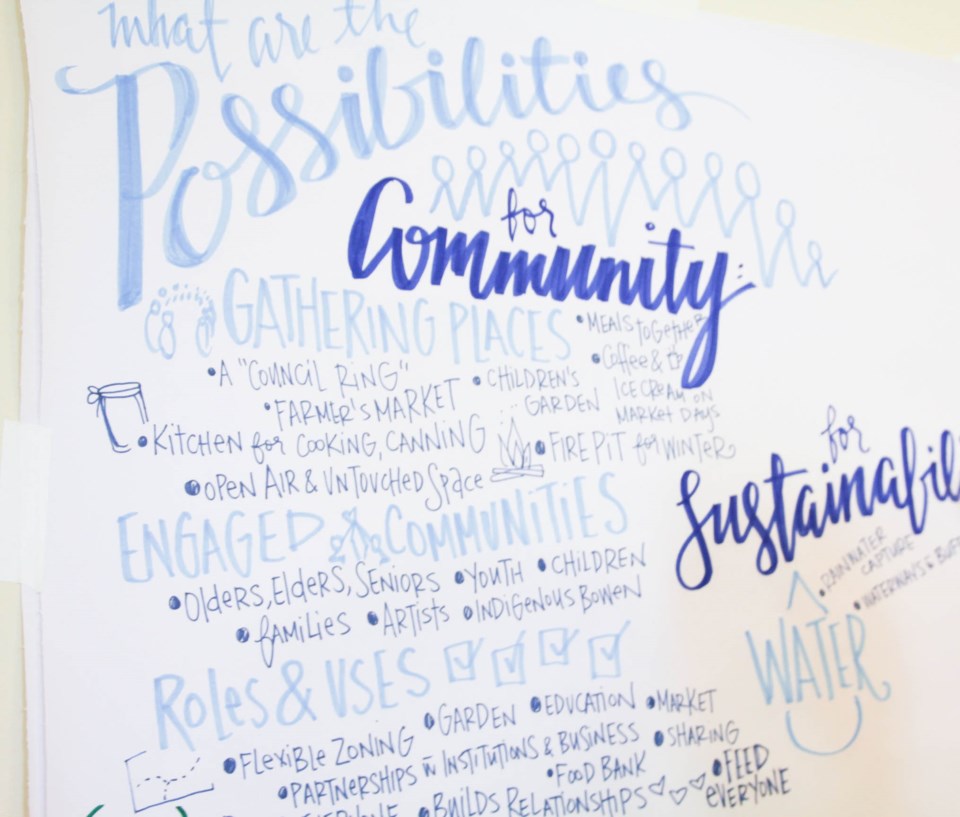 what are the
Possibilities
for
Community:
GATHERING PLACES
• MEALS toGetHER
• A "COUNCIL RING"
• CHILDREN'S
GARDEN
• Coffee &
ICE CREAM ON
MARKET DAYS
• FARMER'S MARKET
• KITCHEN for COOKING, CANNING
• FIRE PIT for WINTER
• OPEN AIR & UNTOUCHED Space
for
Sustainabil
ENGAGED COMMUNITIES
• OldERS, ELdERS, SENIORS • YOUTH • CHILDREN
• fAMILIES • ARTISTS • INDIGENOUS BOWEN
• RAINWATER
CAPTURE
• WATERWAYS &
WATER
Roles & USES
• FLEXIBLE ZONING • GARDEN • EDUCATION • MARKET
• PARTNERSHIPS in INSTITUTIONS & BUSINESS • SHARING
• FOOD BANK • FEED
EVERYONE
• BUILDS RELATIONSHIPS